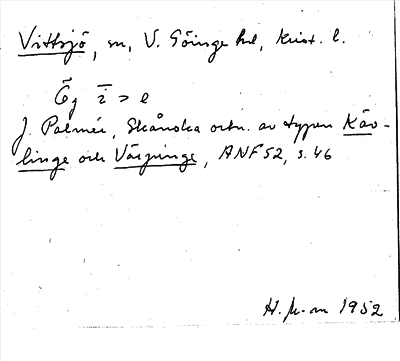 Vittsjö, sn, V. Göinge hd, Krist. l.
Ej ī > e
J. Palmér, Skånska ortn. av typen Käv-
linge och Värpinge, ANF 52, s. 46
1952